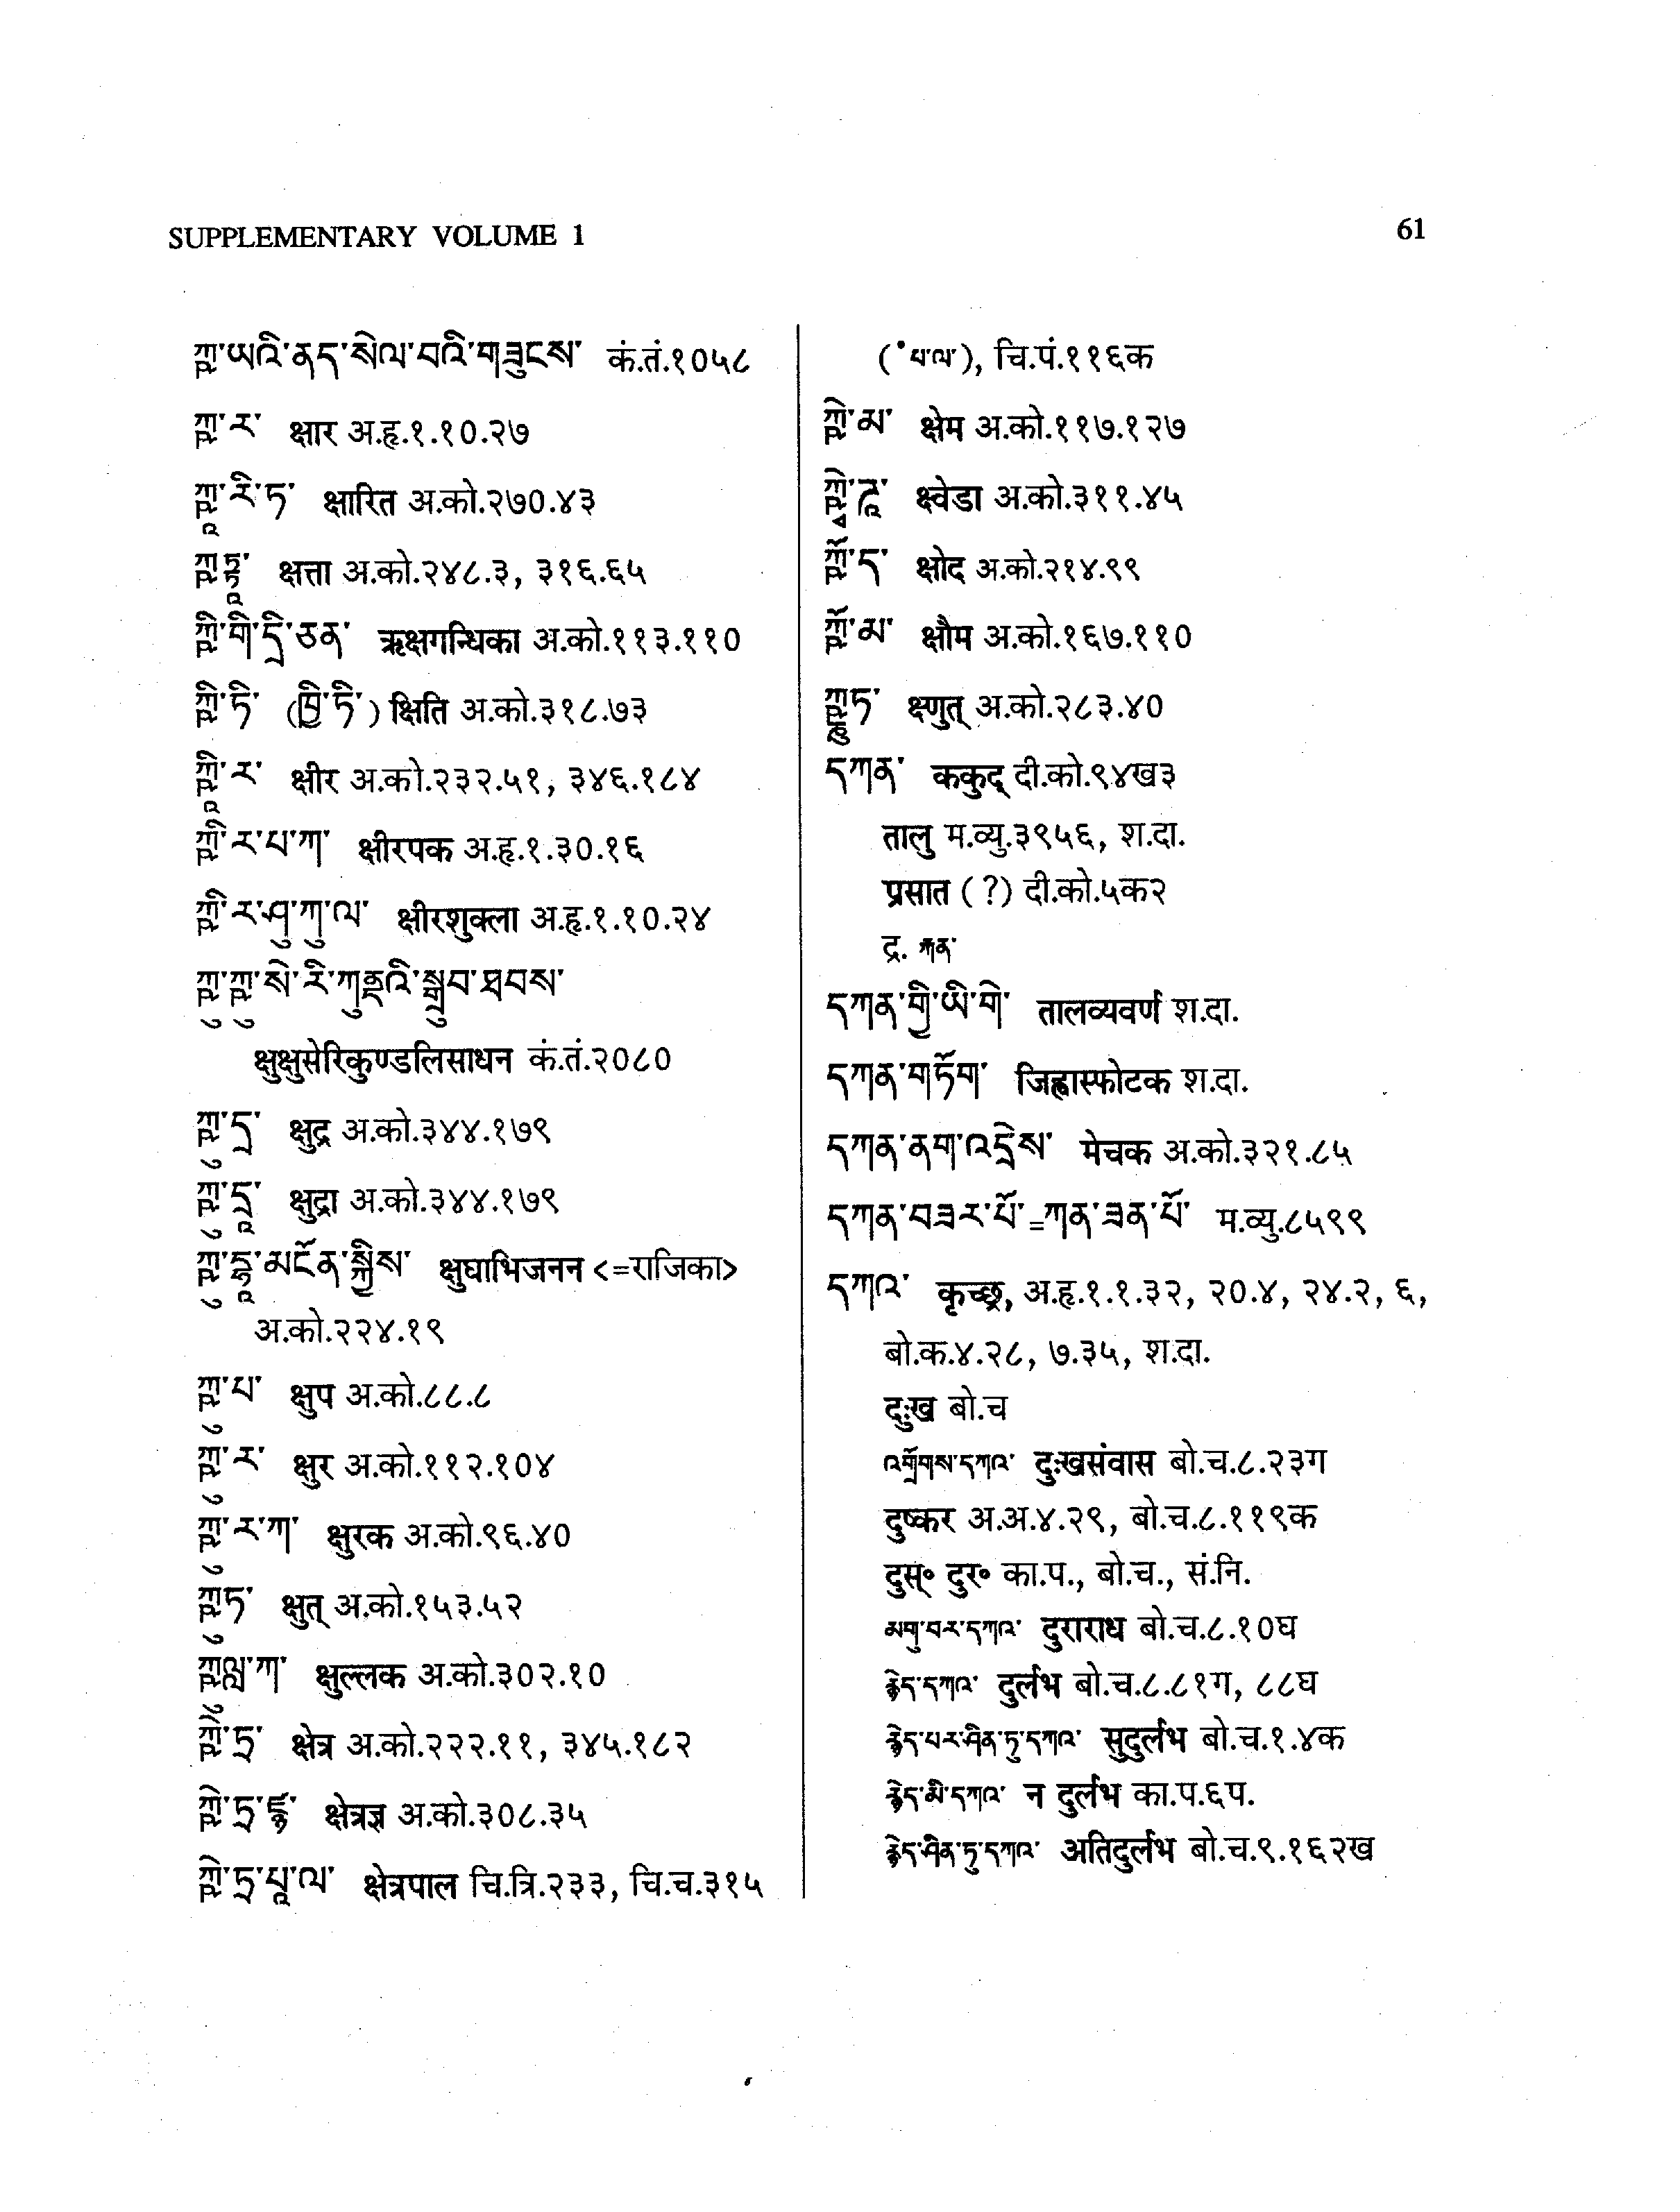 SUPPLEMENTARY VOLUME 1
61
ཀྵ་ཡའི་ནད་སེལ་བའི་གཟུངས་ कं.तं.१०५८
ཀྵ་ར་ क्षार अ.हृ.१.१०.२७
ཀྵཱ་རི་ཏ་ क्षारित अ.को.२७०.४३
ཀྵཏྟཱ་ क्षत्ता अ.को.२४८.३, ३१६.६५
ཀྵི་གི་དྲི་ཅན་ ऋक्षगन्धिका अ.को.११३.११०
ཀྵི་ཏི་ (ཁྱི་ཏི་) क्षिति अ.को.३१८.७३
ཀྵཱི་ར་ क्षीर अ.को.२३२.५१, ३४६.१८४
ཀྵི་ར་པ་ཀ་ क्षीरपक अ.हृ.१.३०.१६
ཀྵི་ར་ཤུ་ཀུ་ལ་ क्षीरशुक्ला अ.हृ.१.१०.२४
ཀྵུ་ཀྵུ་སེ་རི་ཀུནྡའི་སྒྲུབ་ཐབས་
क्षुक्षुसेरिकुण्डलिसाधन कं.तं.२०८०
ཀྵུ་དྲ་ क्षुद्र अ.को.३४४.१७९
ཀྵུ་དྲཱ་ क्षुद्रा अ.को.३४४.१७९
ཀྵུ་དྷཱ་མངོན་སྐྱེས་ क्षुघाभिजनन <=राजिका>
अ.को.२२४.१९
ཀྵུ་པ་ क्षुप अ.को.८८.८
ཀྵུ་ར་ क्षुर अ.को.११२.१०४
ཀྵུ་ར་ཀ་ क्षुरक अ.को.९६.४०
ཀྵུཏ་ क्षुत् अ.को.१५३.५२
ཀྵུལླ་ཀ་ क्षुल्लक अ.को.३०२.१०
ཀྵེ་ཏྲ་ क्षेत्र अ.को.२२२.११, ३४५.१८२
ཀྵེ་ཏྲ་ཛྙ་ क्षेत्रज्ञ अ.को.३०८.३५
ཀྵེ་ཏྲ་པཱ་ལ་ क्षेत्रपाल चि.त्रि.२३३, चि.च.३१५
(॰པ་ལ་), चि.पं.११६क
ཀྵེ་མ་ क्षेम अ.को.११७.१२७
ཀྵྭེ་ཌཱ་ क्ष्वेडा अ.को.३११.४५
ཀྵོ་ད་ क्षोद अ.को.२१४.९९
ཀྵོ་མ་ क्षौम अ.को.१६७.११०
ཀྵྞུཏ་ क्ष्णुत् अ.को.२८३.४०
དཀན་ ककुद् दी.को.९४ख३
तालु म.व्यु.३९५६, श.दा.
प्रसात (?) दी.को.५क२
द्र. རྐན་
དཀན་གྱི་ཡི་གེ་ तालव्यवर्ण श.दा.
དཀན་གཏོག་ जिह्वास्फोटक श.दा.
དཀན་ནག་འདྲེས་ मेचक अ.को.३२१.८५
དཀན་བཟར་པོ་=ཀན་ཟན་པོ་ म.व्यु.८५९९
དཀའ་ कृच्छ्र, अ.हृ.१.१.३२, २०.४, २४.२, ६,
बो.क.४.२८, ७.३५, श.दा.
दुःख बो.च
འགྲོགས་དཀའ་ दुःखसंवास बो.च.८.२३ग
दुष्कर अ.अ.४.२९, बो.च.८.११९क
दुस्॰ दुर॰ का.प., बो.च., सं.नि.
མགུ་བར་དཀའ་ दुराराध बो.च.८.१०घ
རྙེད་དཀའ་ दुर्लभ बो.च.८.८१ग, ८८घ
རྙེད་པར་ཤིན་ཏུ་དཀའ་ सुदुर्लभ बो.च.१.४क
རྙེད་མི་དཀའ་ न दुर्लभ का.प.६प.
རྙེད་ཤིན་ཏུ་དཀའ་ अतिदुर्लभ बो.च.९.१६२ख